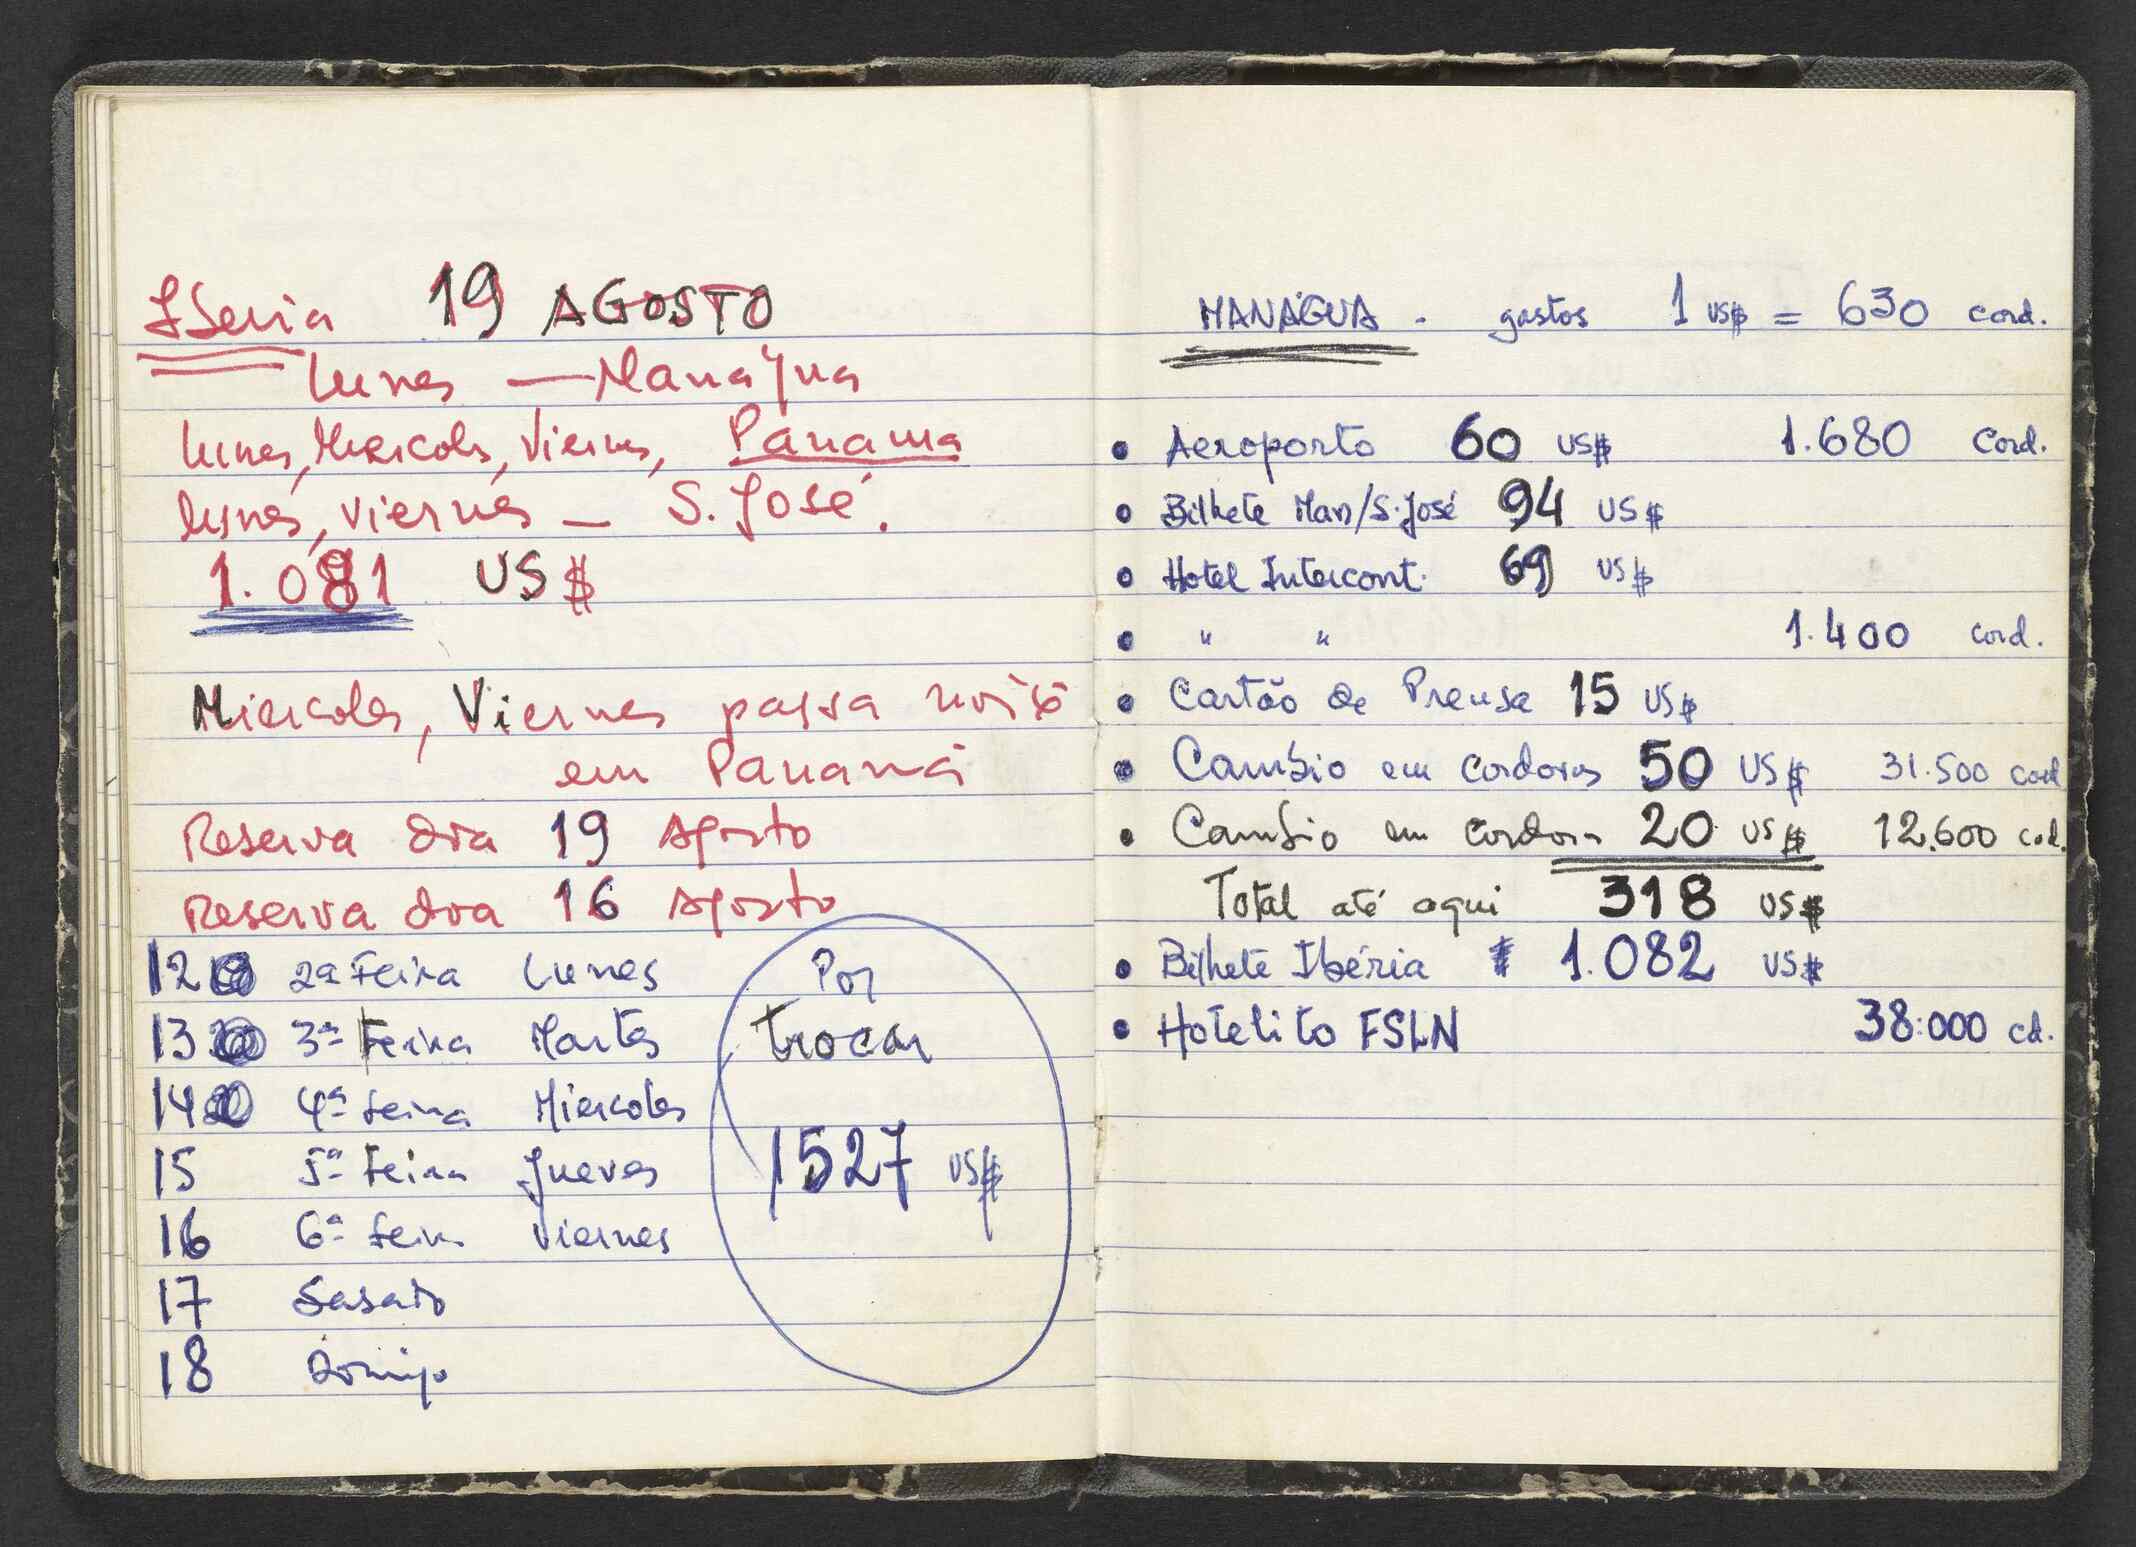 Iberia 19 AGOSTO
lunes — Managua
lunes, Miercoles, Viernes, Panama
lunes, viernes — S. José.
1.081 US $
Miercoles, Viernes passa noite
em Panamá
Reserva dia 19 Agosto
Reserva dia 16 Agosto
12 2ª Feira Lunes
13 3ª Feira Martes
14 4ª feira Miercoles
15 5ª Feira Jueves
16 6ª feira Viernes
17 Sabado
18 Domingo
Por
trocar
1527 US$
MANÁGUA - gastos 1 US$ = 630 cord.
• Aeroporto 60 US$ 1.680 Cord.
• Bilhete Man/S.José 94 US$
• Hotel Intercont. 69 US$
• " " 1.400 cord.
• Cartão de Prensa 15 US$
• Cambio em cordovas 50 US$ 31.500 cord
• Cambio em cordova 20 US$ 12.600 cod.
Total até aqui 318 US$
• Bilhete Ibéria 1.082 US$
• Hotelito FSLN 38.000 cd.